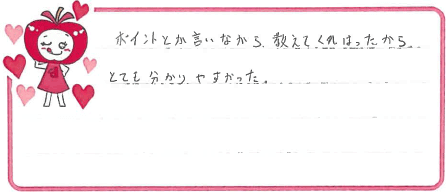 ポイントとか言いながら、教えてくれはったから、
とても分かりやすかった。